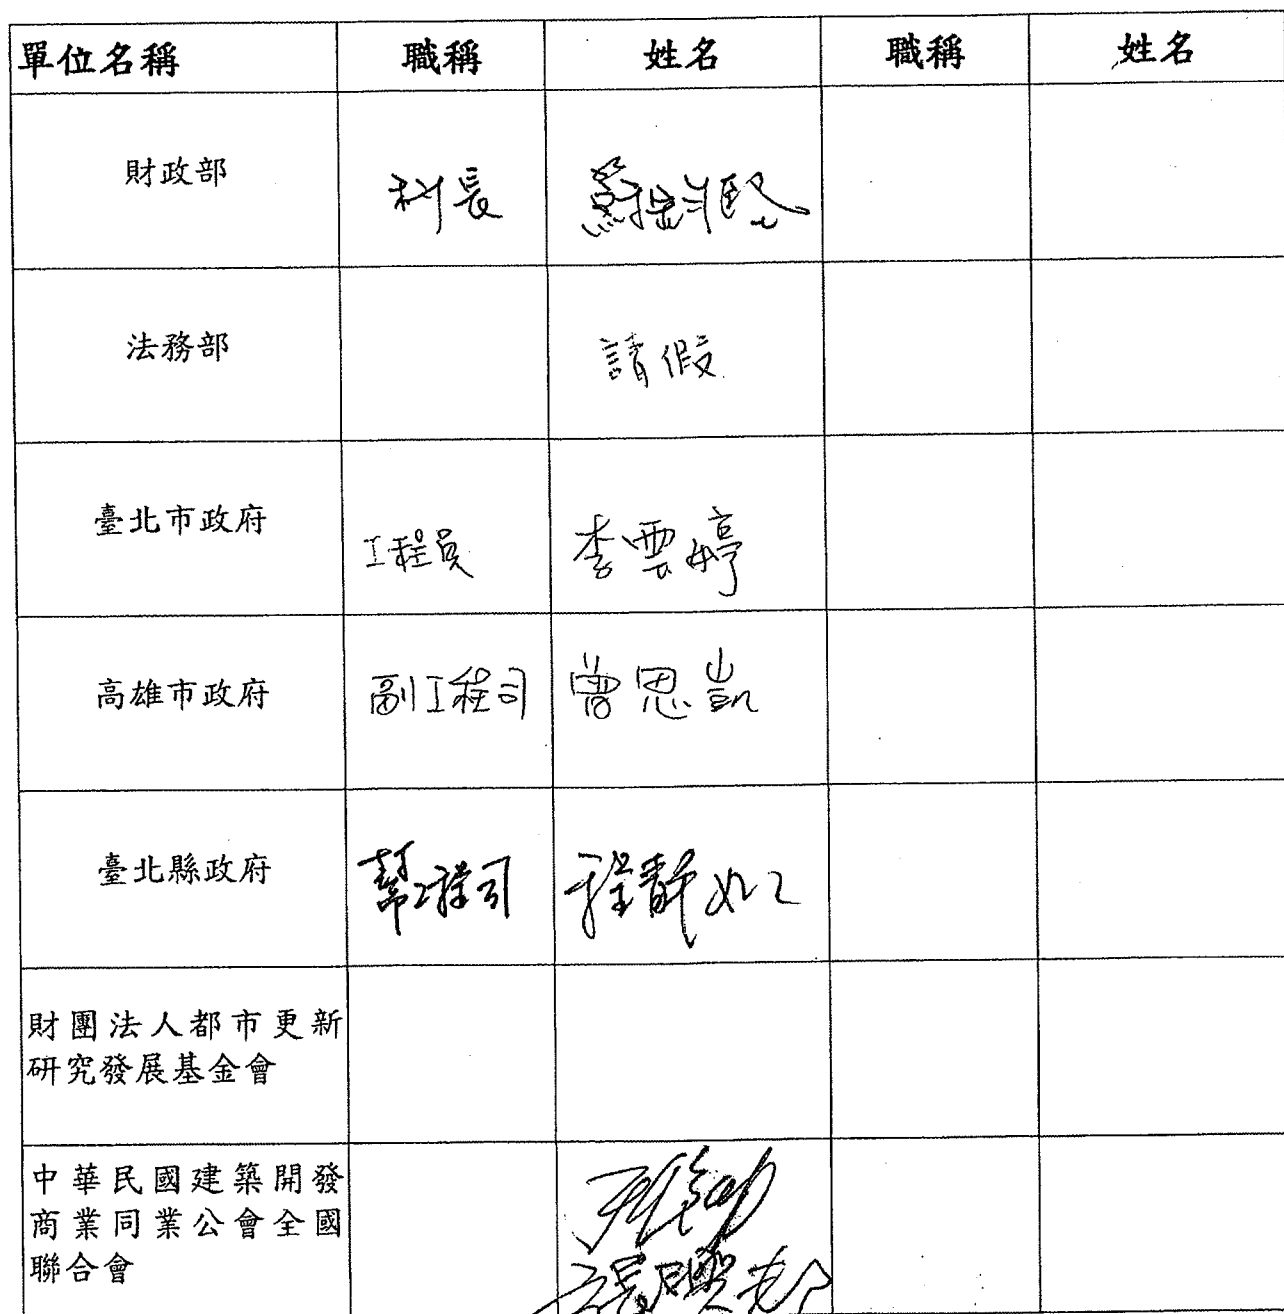 單位名稱 職稱 姓名 職稱 姓名
財政部 科長
法務部 請假
臺北市政府 工程員 李雲婷
高雄市政府 副工程司 曾思凱
臺北縣政府 幫工程司 程靜如
財團法人都市更新
研究發展基金會
中華民國建築開發
商業同業公會全國
聯合會